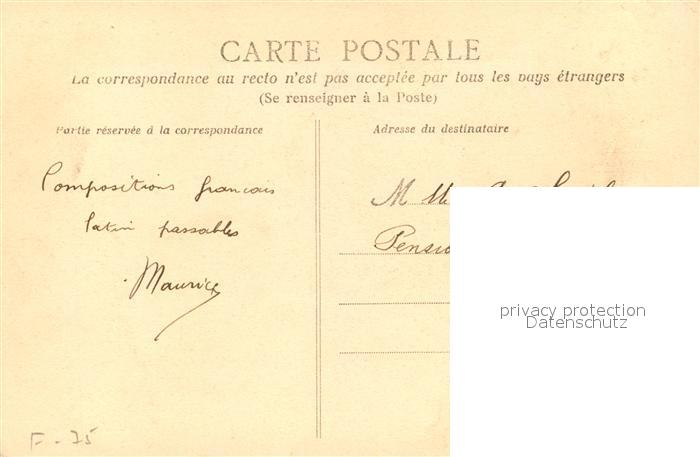 CARTE POSTALE
La correspondance au recto n'est pas acceptée par tous les pays étrangers
(Se renseigner à la Poste)
Partie réservée à la correspondance
Adresse du destinataire
Compositions francais
latin passables
Maurice
M lle
Pensio
privacy protection
Datenschutz
F-75